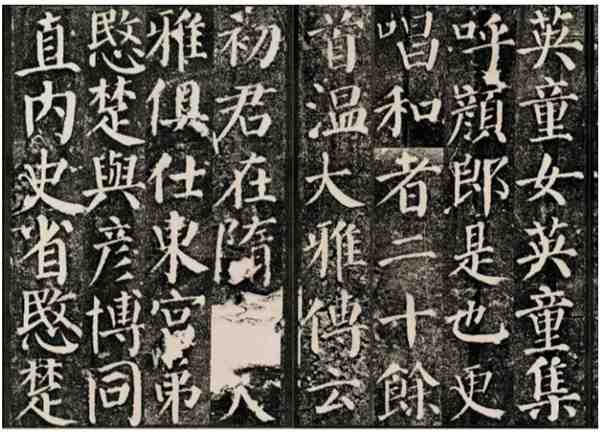 英童女英童集
呼顔郎是也更
唱和者二十餘
首温大雅傳云
初君在隋大
雅俱仕東宫弟
愍楚與彦博同
直内史省愍楚